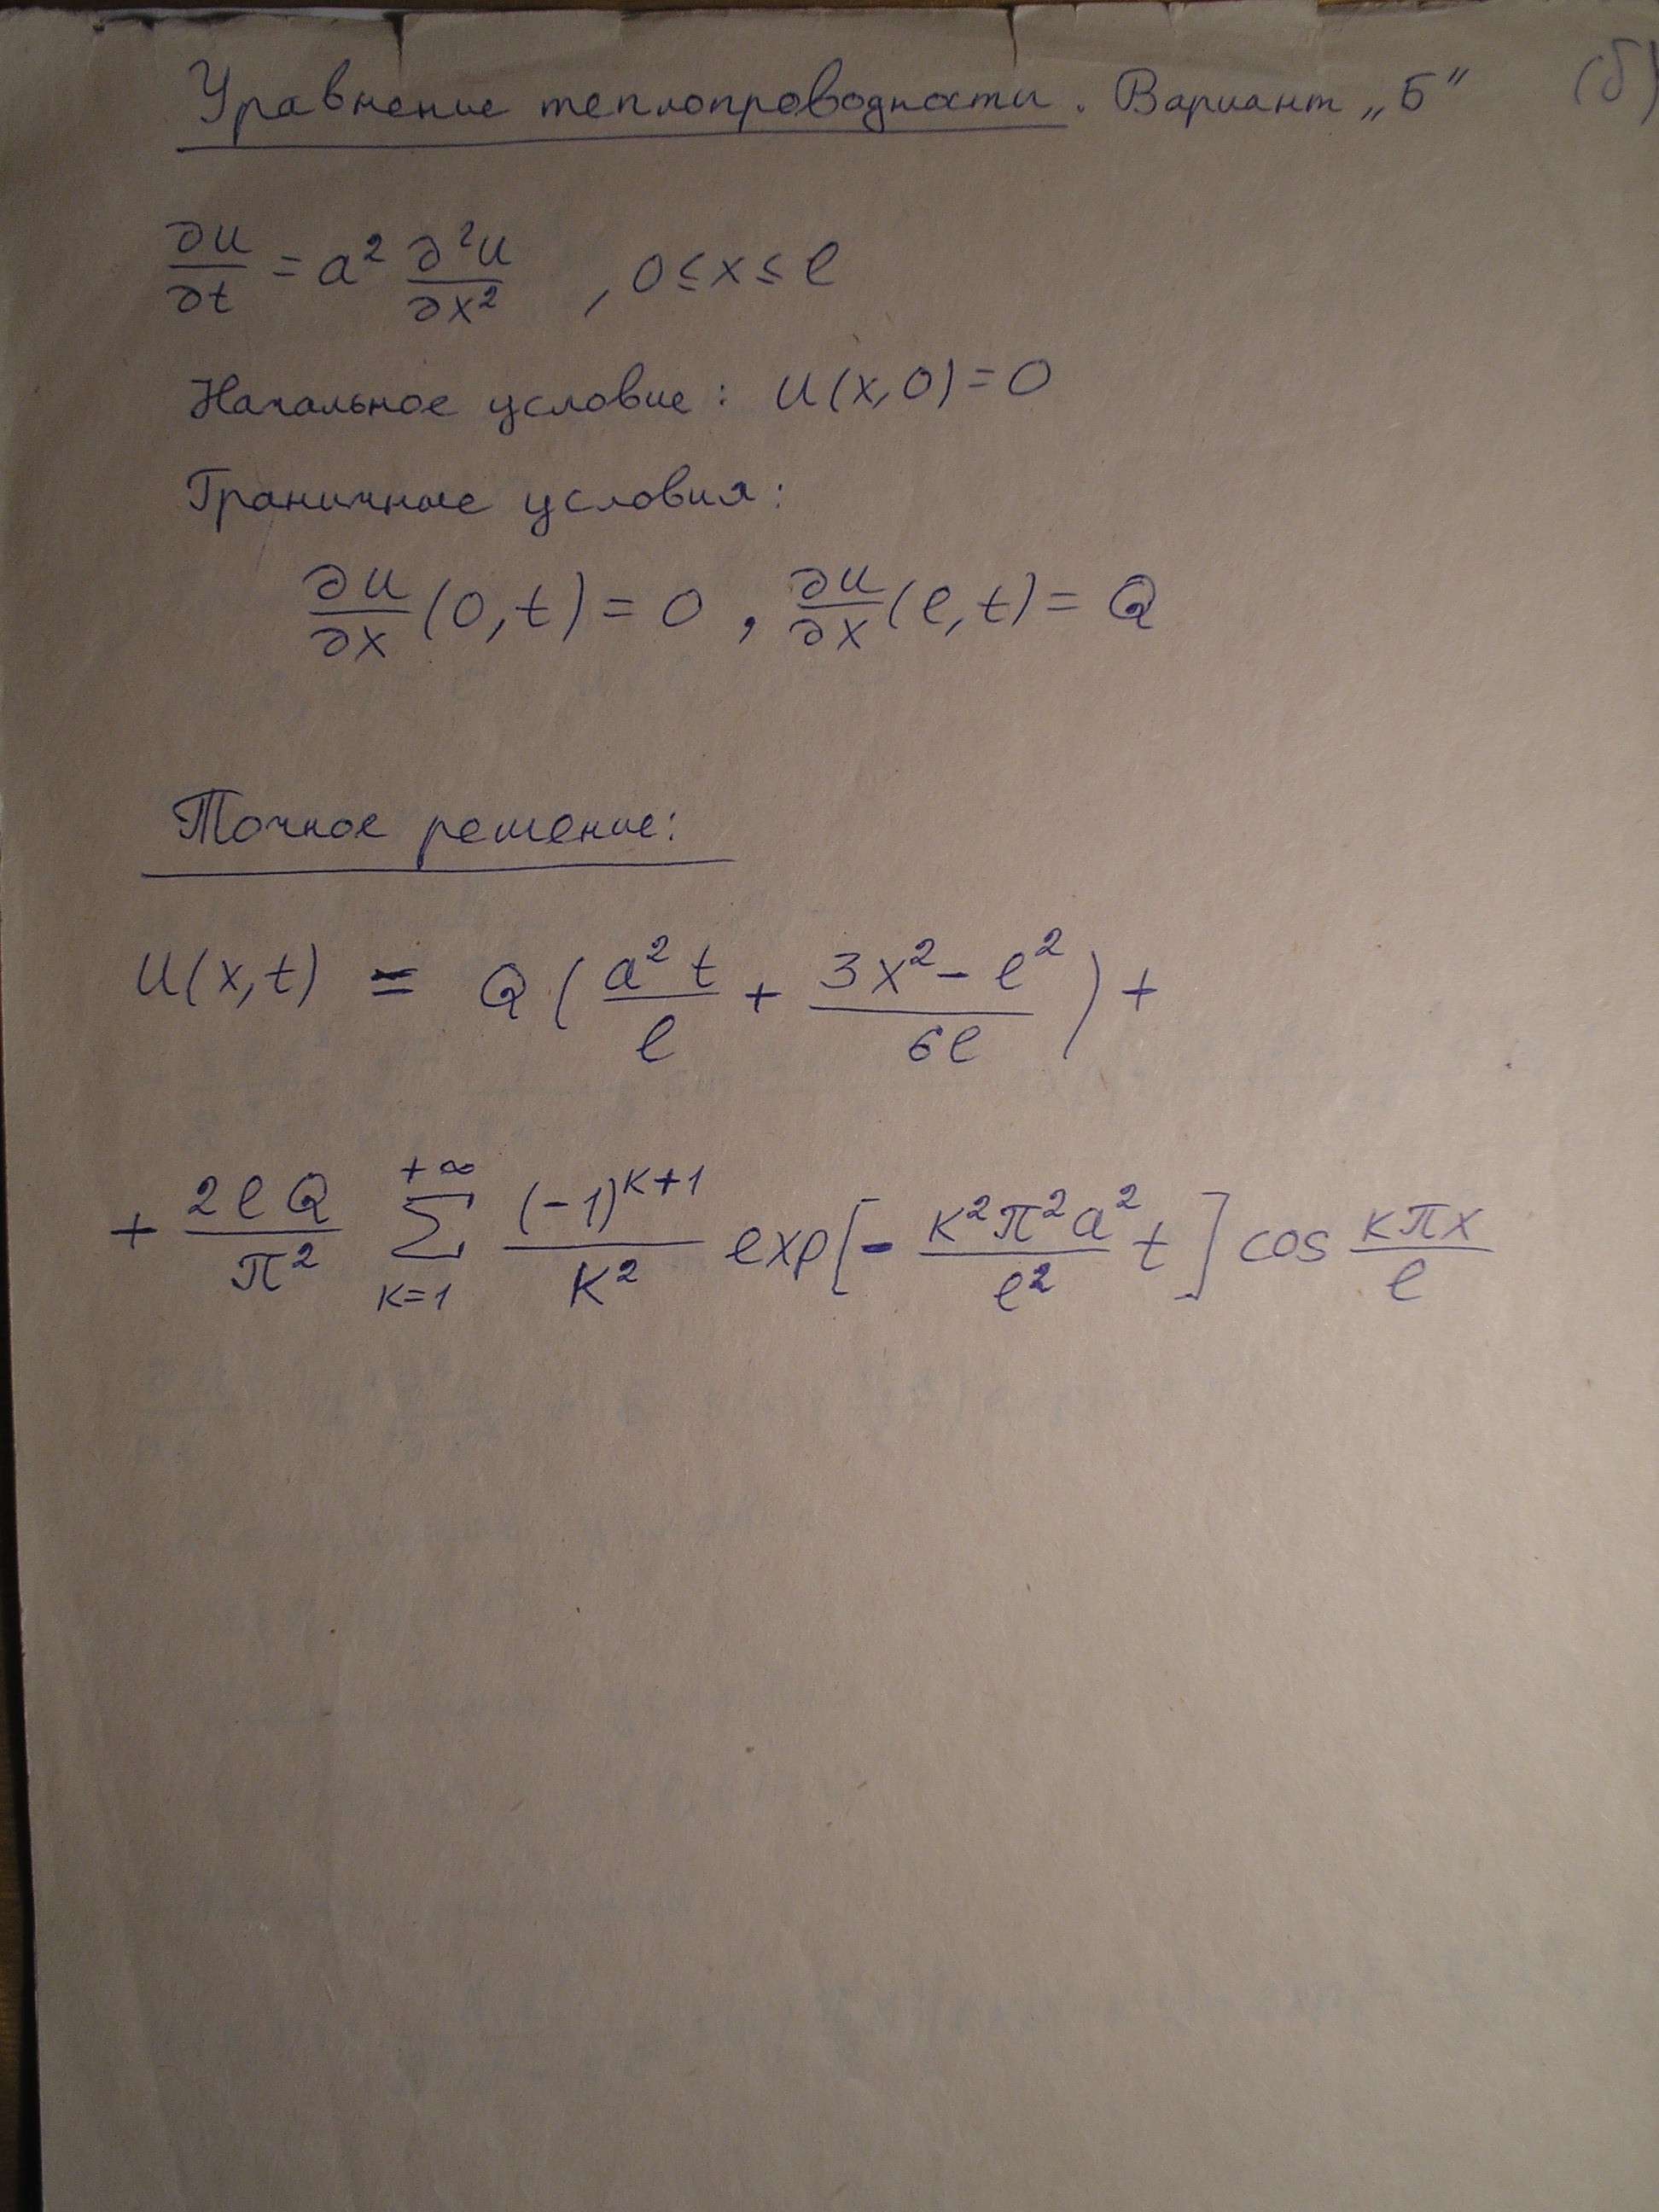 Уравнение теплопроводности. Вариант „Б“ (б)
∂u/∂t = a² ∂²u/∂x² , 0≤x≤l
Начальное условие: u(x,0)=0
Граничные условия:
∂u/∂x (0,t)=0 , ∂u/∂x (l,t)= Q
Точное решение:
u(x,t) = Q ( a²t/l + (3x²-l²)/6l ) +
+ 2lQ/π² ∑_{k=1}^{+∞} (-1)^{k+1}/k² exp[- k²π²a²/l² t] cos kπx/l